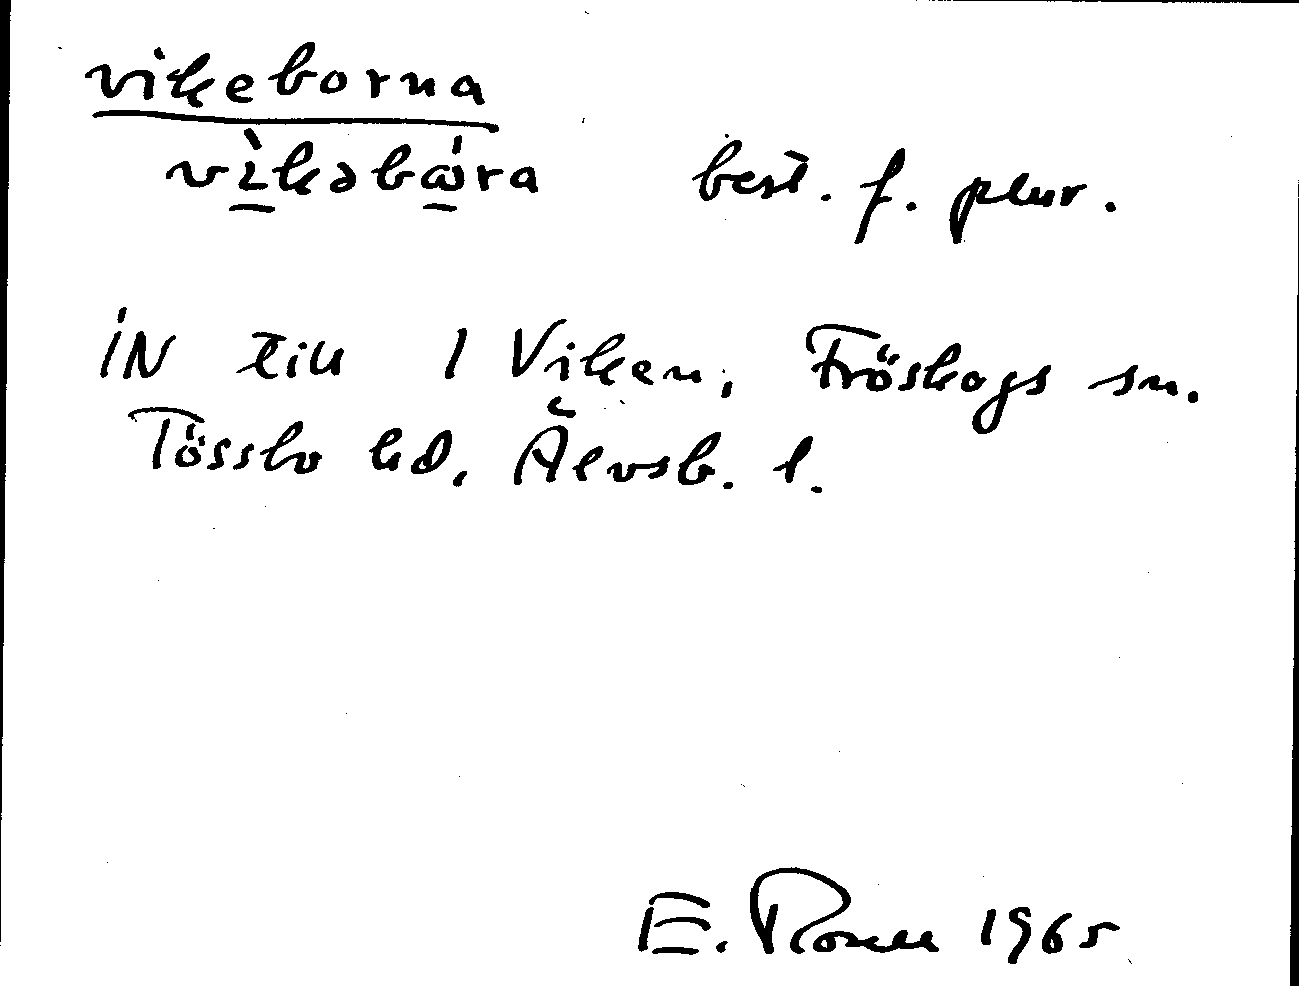 vikeborna
vìkəbω̇ra best. f. plur.
IN till 1 Viken, Fröskogs sn.
Tössbo hd, Älvsb. l.
E. 1965